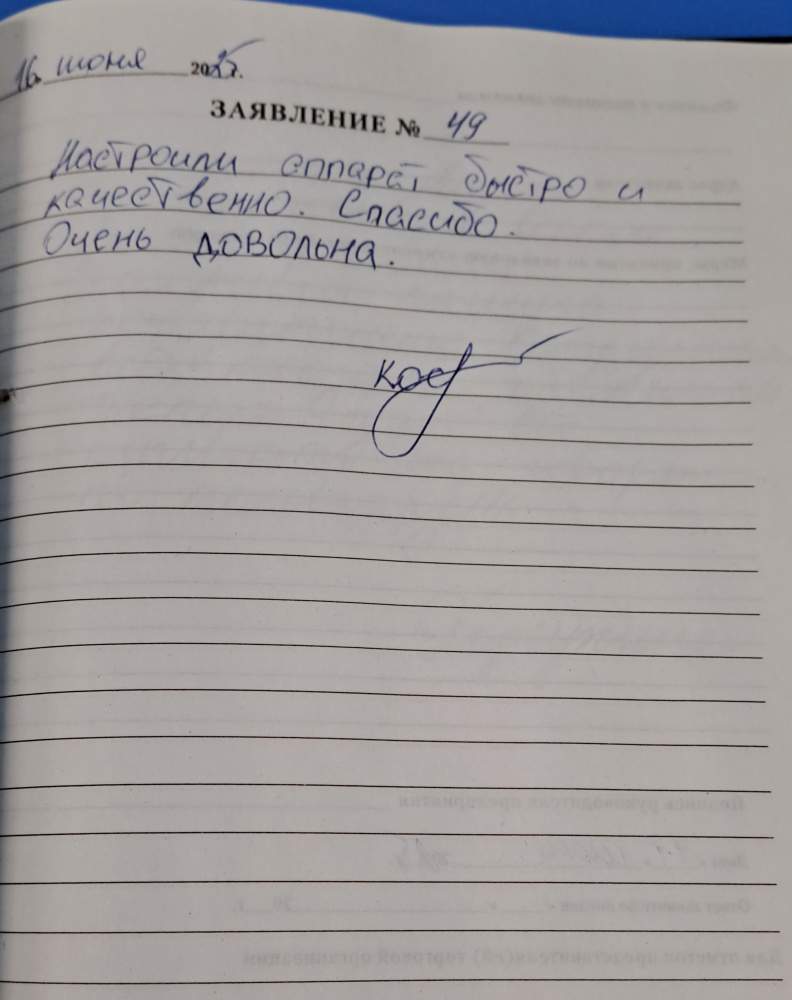 16 июня 2025г.
ЗАЯВЛЕНИЕ № 49
Настроили аппарат быстро и
качественно. Спасибо.
Очень довольна.